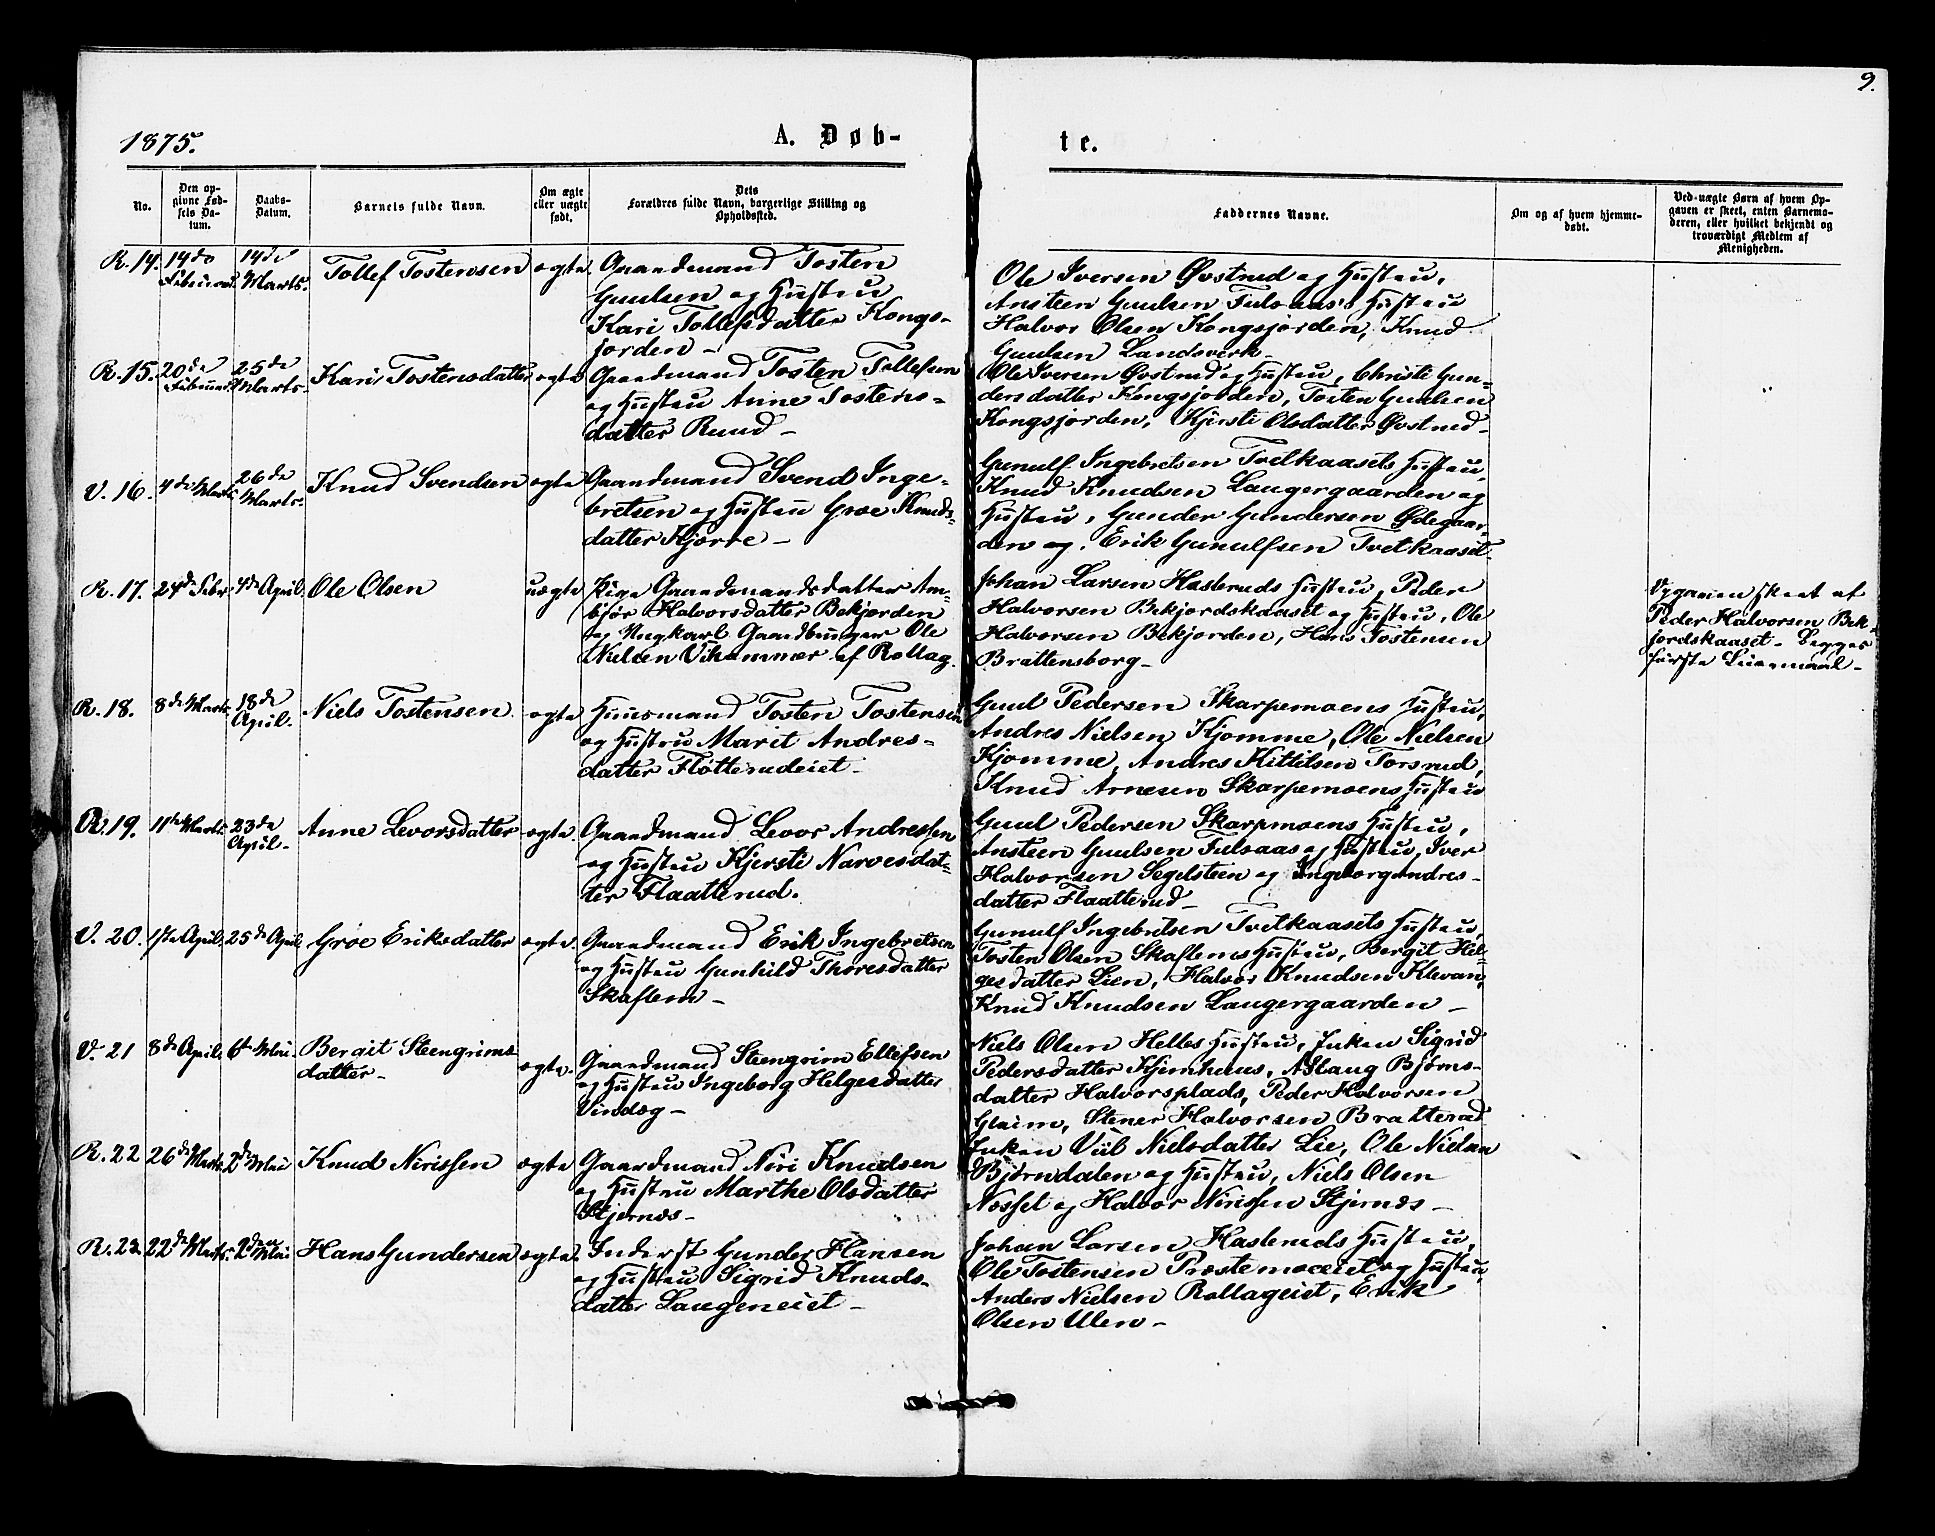 9.
1875.
A. Døb-
te.
No.
Den op-
givne Fød-
sels Da-
tum.
Daabs-
Datum.
Barnets fulde Navn.
Om ægte
eller uægte
født.
Dets
Forældres fulde Navn, borgerlige Stilling og
Opholdssted.
Faddernes Navne.
Om og af hvem hjemme-
døbt.
Ved uægte Børn af hvem Op-
gaven er skeet, enten Barnemo-
deren, eller hvilket bekjendt og
troværdigt Medlem af
Menigheden.
R. 14.
14de
Februar
14de
Marts.
Tollef Tostensen
ægte.
Gaardmand Tosten
Guulsen og Hustru
Kari Tollefsdatter Kongs-
jorden -
Ole Iversen Øvstrud og Hustru,
Ansteen Guulsen Fulsaas's Hustru
Halvor Olsen Kongsjorden, Knud
Guulsen Landsverk -
R. 15.
20de
Februar
25de
Marts -
Kari Tostensdatter
ægte
Gaardmand Tosten Tollefsen
og Hustru Anne Tostens-
datter Ruud -
Ole Iversen Øvstrud og Hustru, Christi Gun-
dersdatter Kongsjorden, Tosten Guulsen
Kongsjorden, Kjersti Olsdatter Øvstrud -
V. 16.
4de Marts
26de
Marts.
Knud Svendsen
ægte
Gaardmand Svend Inge-
bretsen og Hustru Groe Knuds-
datter Kjørre -
Gunulf Ingebretsen Tvetkaasets Hustru,
Knud Knudsen Laugergaarden og
Hustru, Gunder Gundersen Ødegaar-
den og Erik Gunulfsen Tvetkaaset -
R. 17.
24de Febr.
4de April.
Ole Olsen
uægte
Pige Gaardmandsdatter Am-
bjør Halvorsdatter Bekjorden
og Ungkarl Gaardbruger Ole
Nielsen Vihammer af Rollag.
Johan Larsen Hasleruds Hustru, Peder
Halvorsen Bekjordskaaset og Hustru, Ole
Halvorsen Bekjorden, Hans Tostensen
Brattensborg -
Opgaven skeet af
Peder Halvorsen Bek-
jordskaaset - Begges
første Leiermaal -
R. 18.
8de Marts
18de
April.
Niels Tostensen
ægte
Huusmand Tosten Tostensen
og Hustru Marit Andres-
datter Fløtterudeiet -
Guul Pedersen Skarpemoens Hustru,
Andres Nielsen Kjomme, Ole Nielsen
Kjomme, Andres Kittilsen Torsrud,
Knud Arnesen Skarpemoens Hustru
R. 19.
11te Marts
23de
April -
Anne Levorsdatter
ægte.
Gaardmand Levor Andressen
og Hustru Kjersti Narvesdat-
ter Flaatterud.
Guul Pedersen Skarpmoens Hustru,
Ansteen Guulsen Fulsaas og Hustru, Iver
Halvorsen Segelsteen og Ingeborg Andres-
datter Flaatterud -
V. 20.
1ste April.
25de April
Groe Eriksdatter
ægte.
Gaardmand Erik Ingebretsen
og Hustru Gunhild Thoresdatter
Skaflem -
Gunulf Ingebretsen Tvetkaasets Hustru,
Tosten Olsen Skaflems Hustru, Bergit Hel-
gesdatter Lien, Halvor Knudsen Klevan,
Knud Knudsen Laugergaarden -
V. 21
8de April.
6te Mai.
Bergit Steengrims
datter -
ægte.
Gaardmand Steengrim Ellefsen
og Hustru Ingeborg Helgesdatter
Vindeg -
Niels Olsen Helles Hustru, Enken Sigrid
Pedersdatter Kjernhuus, Aslaug Bjørns-
datter Halvorsplads, Peder Halvorsen
Glaim, Stener Halvorsen Bratterud
R. 22
26de Marts
2de Mai
Knud Nirissen
ægte
Gaardmand Niri Knudsen
og Hustru Marthe Olsdatter
Stjernes -
Enken Viil Nielsdatter Lie, Ole Nielsen
Bjørndalen og Hustru, Niels Olsen
Nosset og Halvor Nirissen Stjernes -
R. 23.
22de Marts.
2den Mai
Hans Gundersen
ægte.
Inderst Gunder Hansen
og Hustru Sigrid Knuds-
datter Laugeneiet -
Johan Larsen Hasleruds Hustru,
Ole Tostensen Præstemoeeiet og Hustru,
Anders Nielsen Rollageiet, Erik
Olsen Ulen -